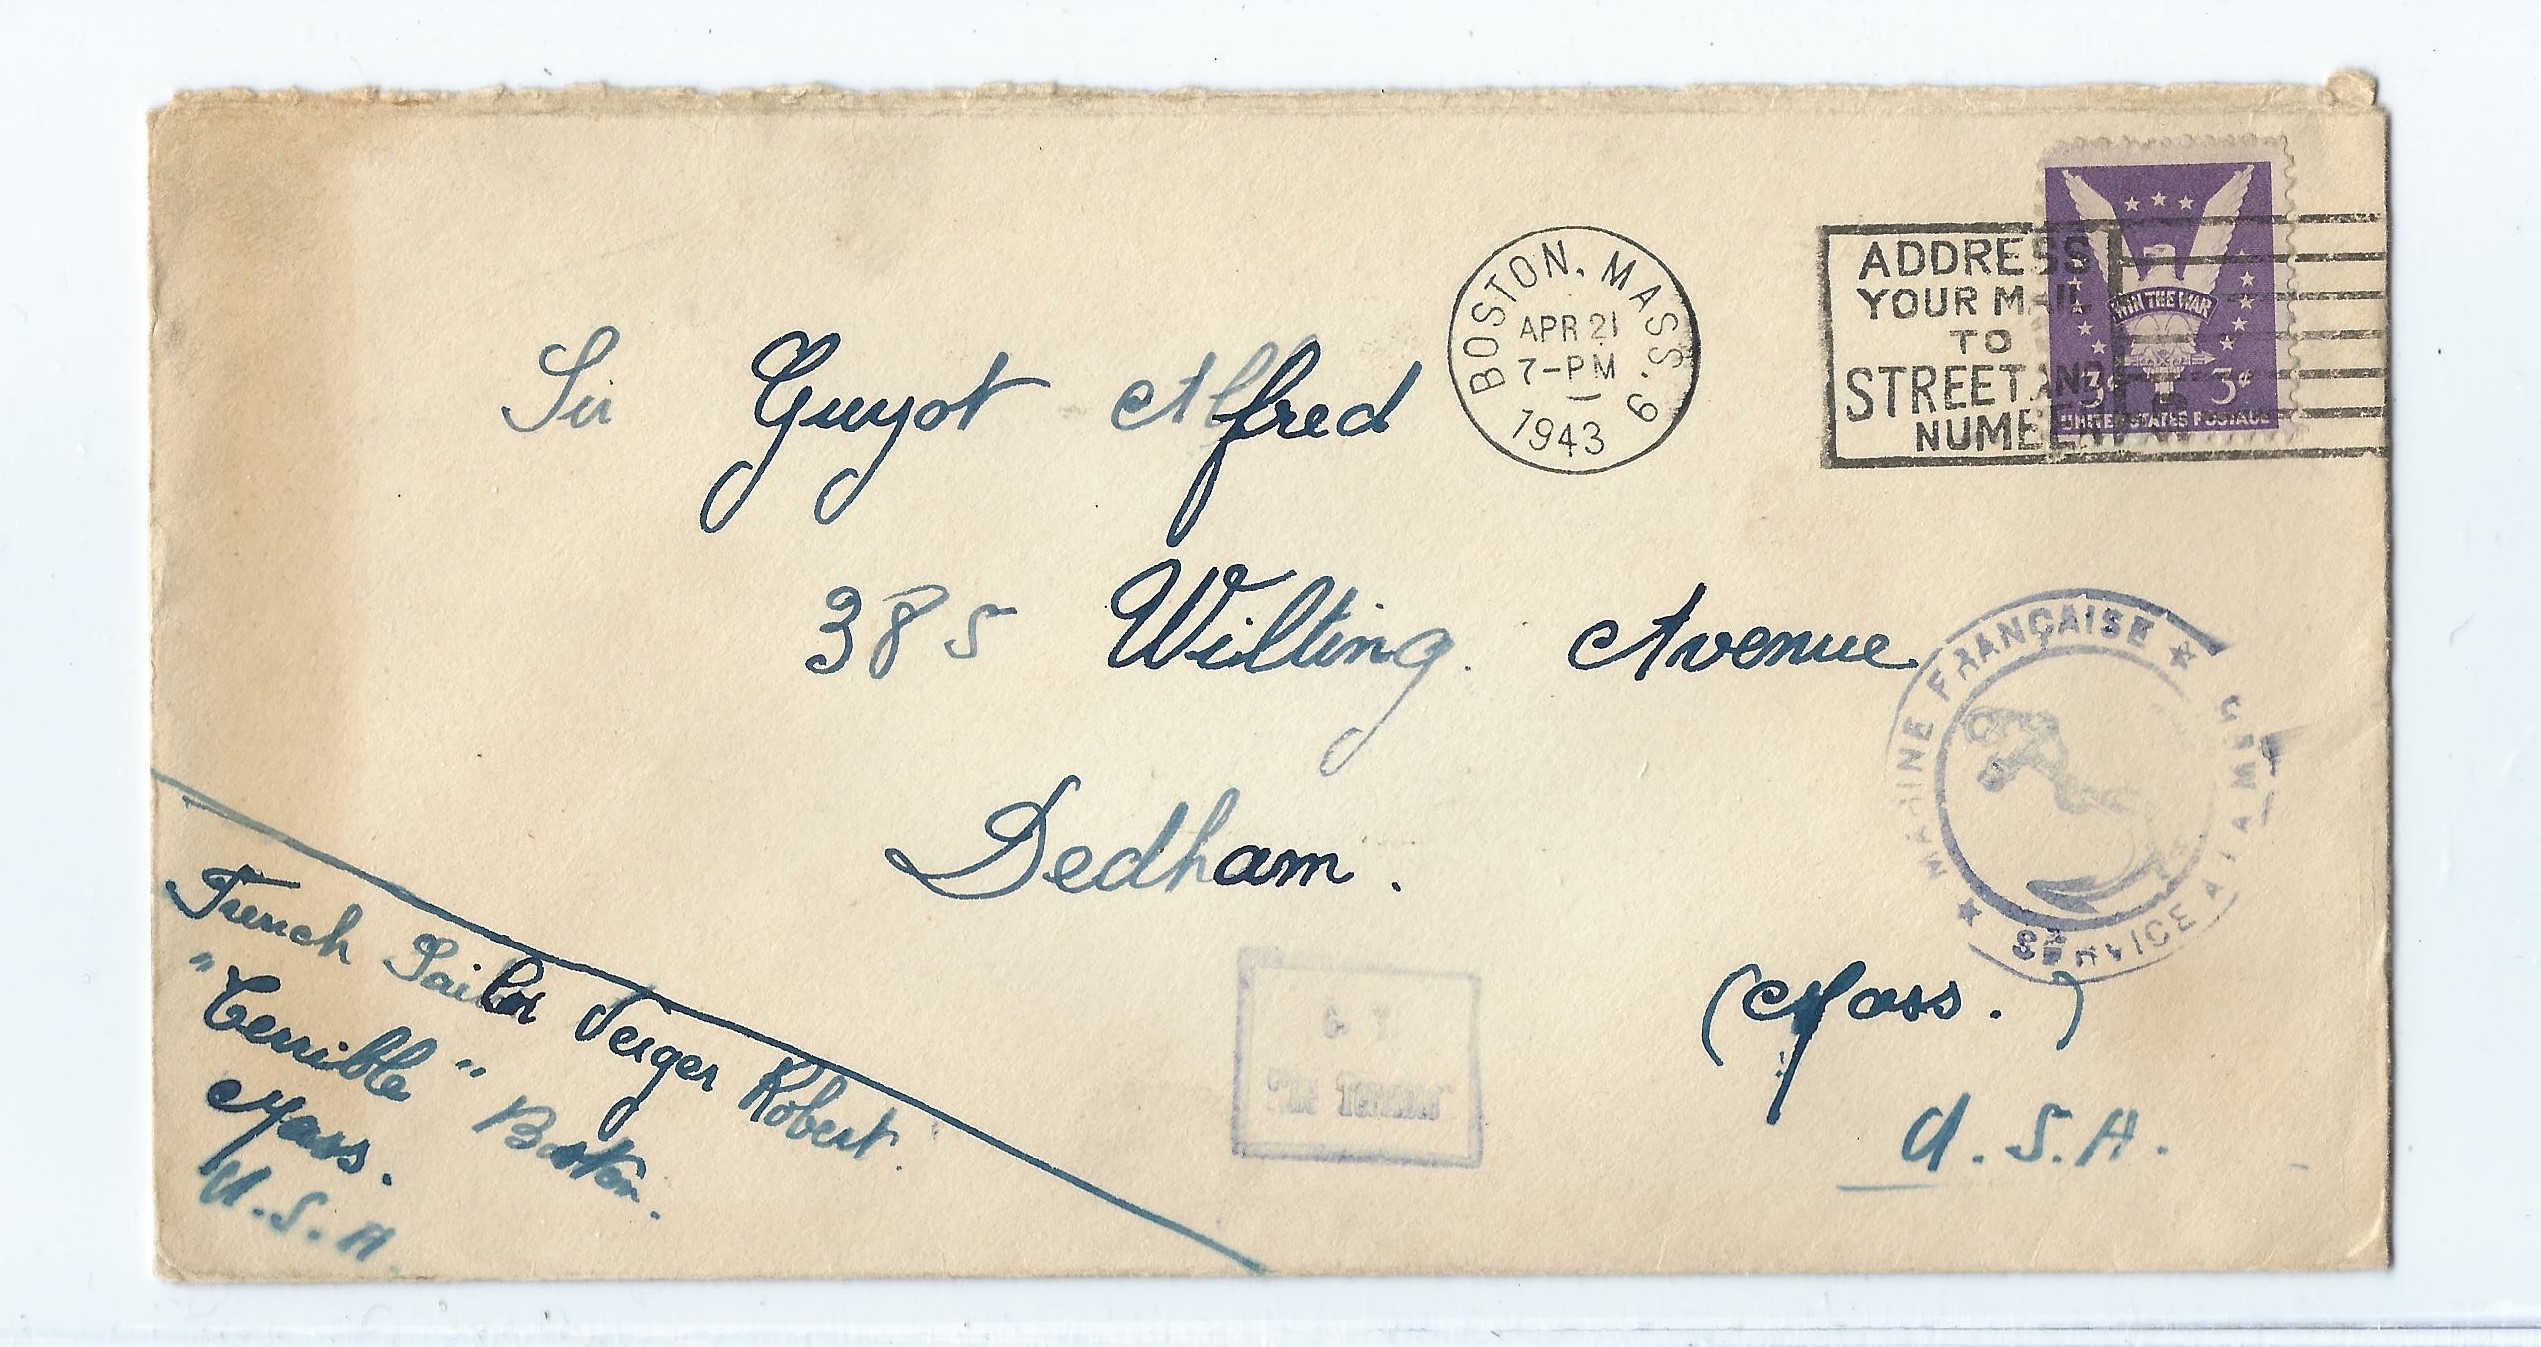 BOSTON, MASS. 6
APR 21
7-PM
1943
ADDRESS
YOUR MAIL
TO
STREET AND
NUMBER
WIN THE WAR
3¢ 3¢
UNITED STATES POSTAGE
Sir Guyot Alfred
385 Wilting Avenue
Dedham.
(Mass.)
U.S.A.
MARINE FRANÇAISE
SERVICE A LA MER
"Le Terrible"
French Sailor Verger Robert.
"Terrible" Boston.
Mass.
U.S.A.